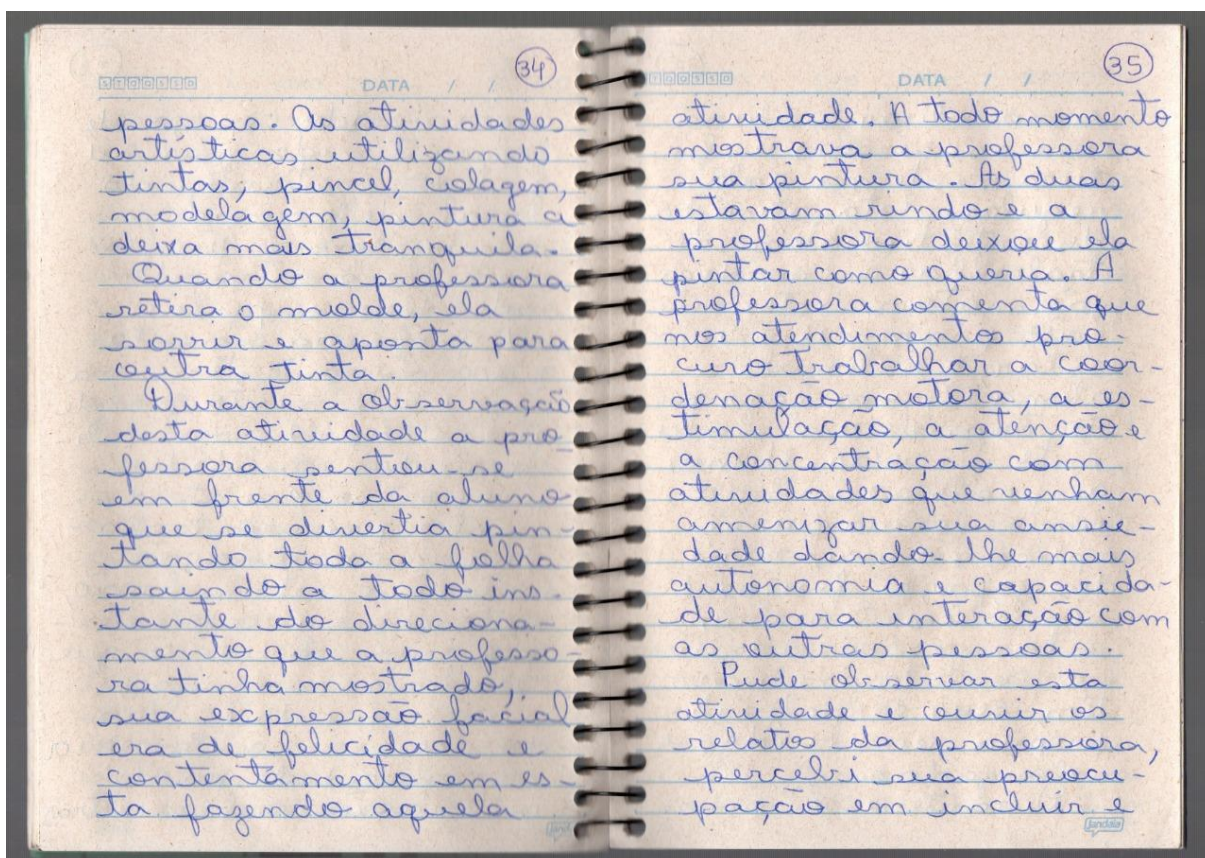 34
DATA / /
pessoas. As atividades
artísticas utilizando
tintas, pincel, colagem,
modelagem, pintura a
deixa mais tranquila.
Quando a professora
retira o molde, ela
sorrir e aponta para
outra tinta.
Durante a observação
desta atividade a pro
fessora sentou-se
em frente da aluno
que se divertia pin-
tando toda a folha
saindo a todo ins-
tante do direciona-
mento que a professo-
ra tinha mostrado,
sua expressão facial
era de felicidade e
contentamento em es-
ta fazendo aquela
jandaia
35
DATA / /
atividade. A todo momento
mostrava a professora
sua pintura. As duas
estavam rindo e a
professora deixou ela
pintar como queria. A
professora comenta que
nos atendimentos pro-
curo trabalhar a coor-
denação motora, a es-
timulação, a atenção e
a concentração com
atividades que venham
amenizar sua ansie-
dade dando-lhe mais
autonomia e capacida-
de para interação com
as outras pessoas.
Pude observar esta
atividade e ouvir os
relatos da professora,
percebi sua preocu-
pação em incluir e
jandaia